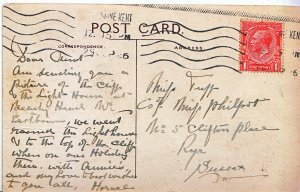 POST CARD.
CORRESPONDENCE
ADDRESS
KENT
Dear Aunt
Am sending you a
Picture of the Cliff
& the Light House just
Beachy Head Nr
Eastbourne, we went
round the Lighthouse
& to the top of the Cliff
when on our Holiday
There. with Annie's
and my Love & best wishes
to you all,
Miss Tuff
C/o Miss Philpot
No 5 Clifton Place
Rye
Sussex